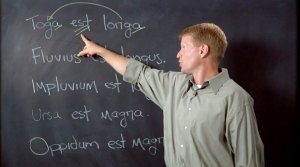 Toga est longa.
Fluvius longus.
Impluvium est
Ursa est magna.
Oppidum est magn